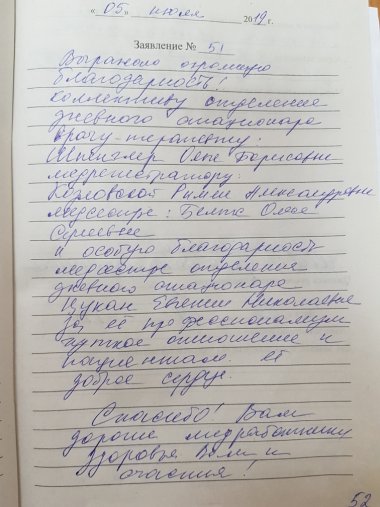 « 05 » июля 2019 г.
Заявление № 51
Выражаю огромную
благодарность!
коллективу отделения
дневного стационара
врачу-терапевту:
Шпинглер Оле Борисовне
медрегистратору:
Козловской Римме Александровне
медсестре: Белик Ольге
Сергеевне
и особую благодарность
медсестре отделения
дневного стационара
Цукан Евгении Николаевне
за её профессионализм
чуткое отношение к
пациентам её
доброе сердце.
Спасибо! Вам
дорогие медработники
Здоровья Вам и
счастья!
52